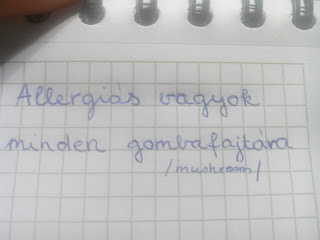 Allergiás vagyok
minden gombafajtára
/mushroom/